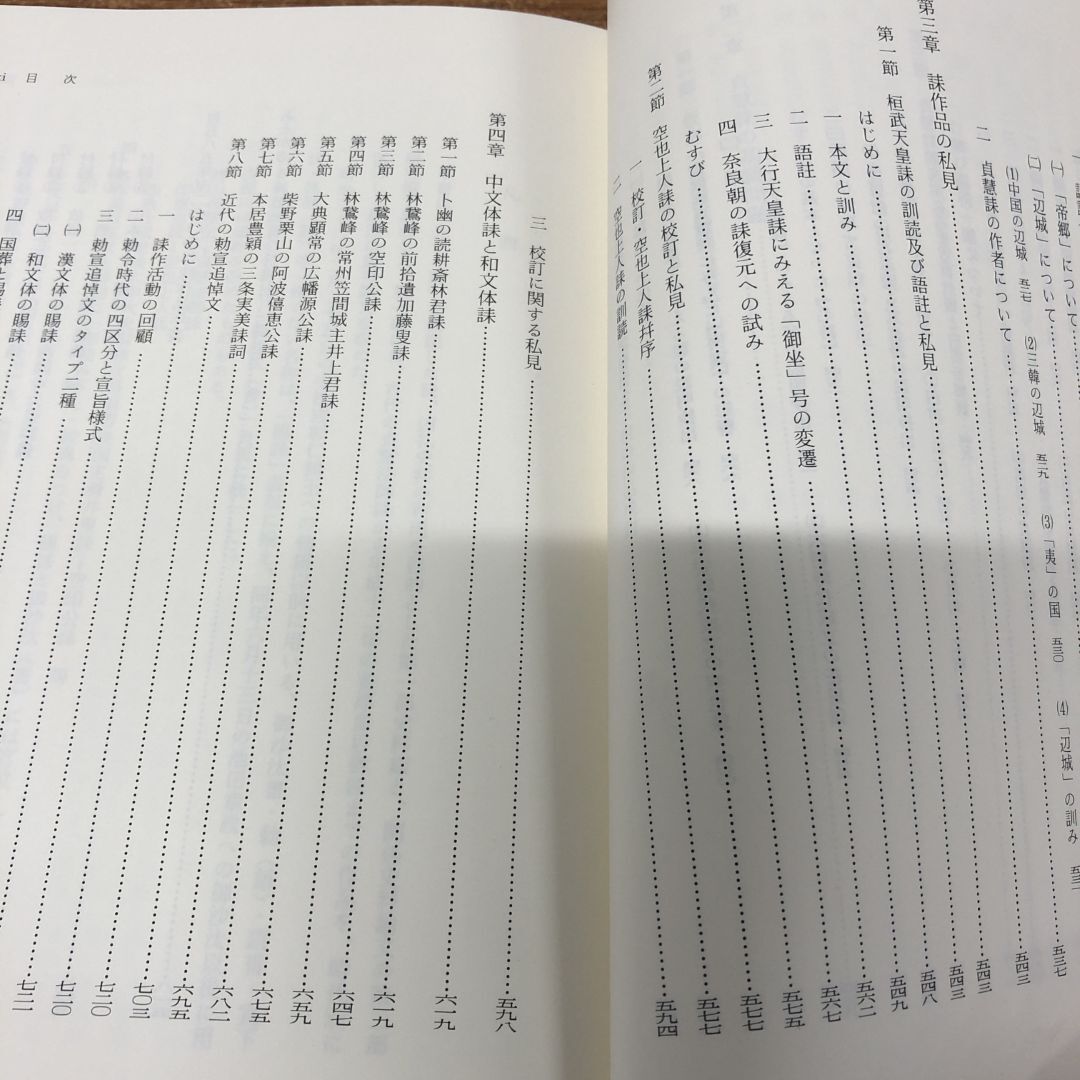 ㈠ 「帝郷」について
㈡ 「辺城」について
⑴中国の辺城 五二七 ⑵三韓の辺城 五二九 ⑶「夷」の国 五三〇 ⑷「辺城」の訓み
二 貞慧誄の作者について 五三七
第三章 誄作品の私見 五四三
第一節 桓武天皇誄の訓読及び語註と私見 五四三
はじめに 五四三
一 本文と訓み 五四八
二 語註 五四九
三 大行天皇誄にみえる「御坐」号の変遷 五六二
四 奈良朝の誄復元への試み 五六七
むすび 五七五
第二節 空也上人誄の校訂と私見 五七七
一 校訂・空也上人誄幷序 五七七
二 空也上人誄の訓読 五九四
目次
三 校訂に関する私見 五九八
第四章 中文体誄と和文体誄 六一九
第一節 卜幽の読耕斎林君誄 六一九
第二節 林鵞峰の前拾遺加藤叟誄 六四七
第三節 林鵞峰の空印公誄 六五九
第四節 林鵞峰の常州笠間城主井上君誄 六七五
第五節 大典顕常の広幡源公誄 六八二
第六節 柴野栗山の阿波僖恵公誄 六九五
第七節 本居豊穎の三条実美誄詞 七〇三
第八節 近代の勅宣追悼文 七二〇
はじめに 七二〇
一 誄作活動の回顧 七二一
二 勅令時代の四区分と宣旨様式
三 勅宣追悼文のタイプ二種
㈠ 漢文体の賜誄
㈡ 和文体の賜誄
四 国葬と